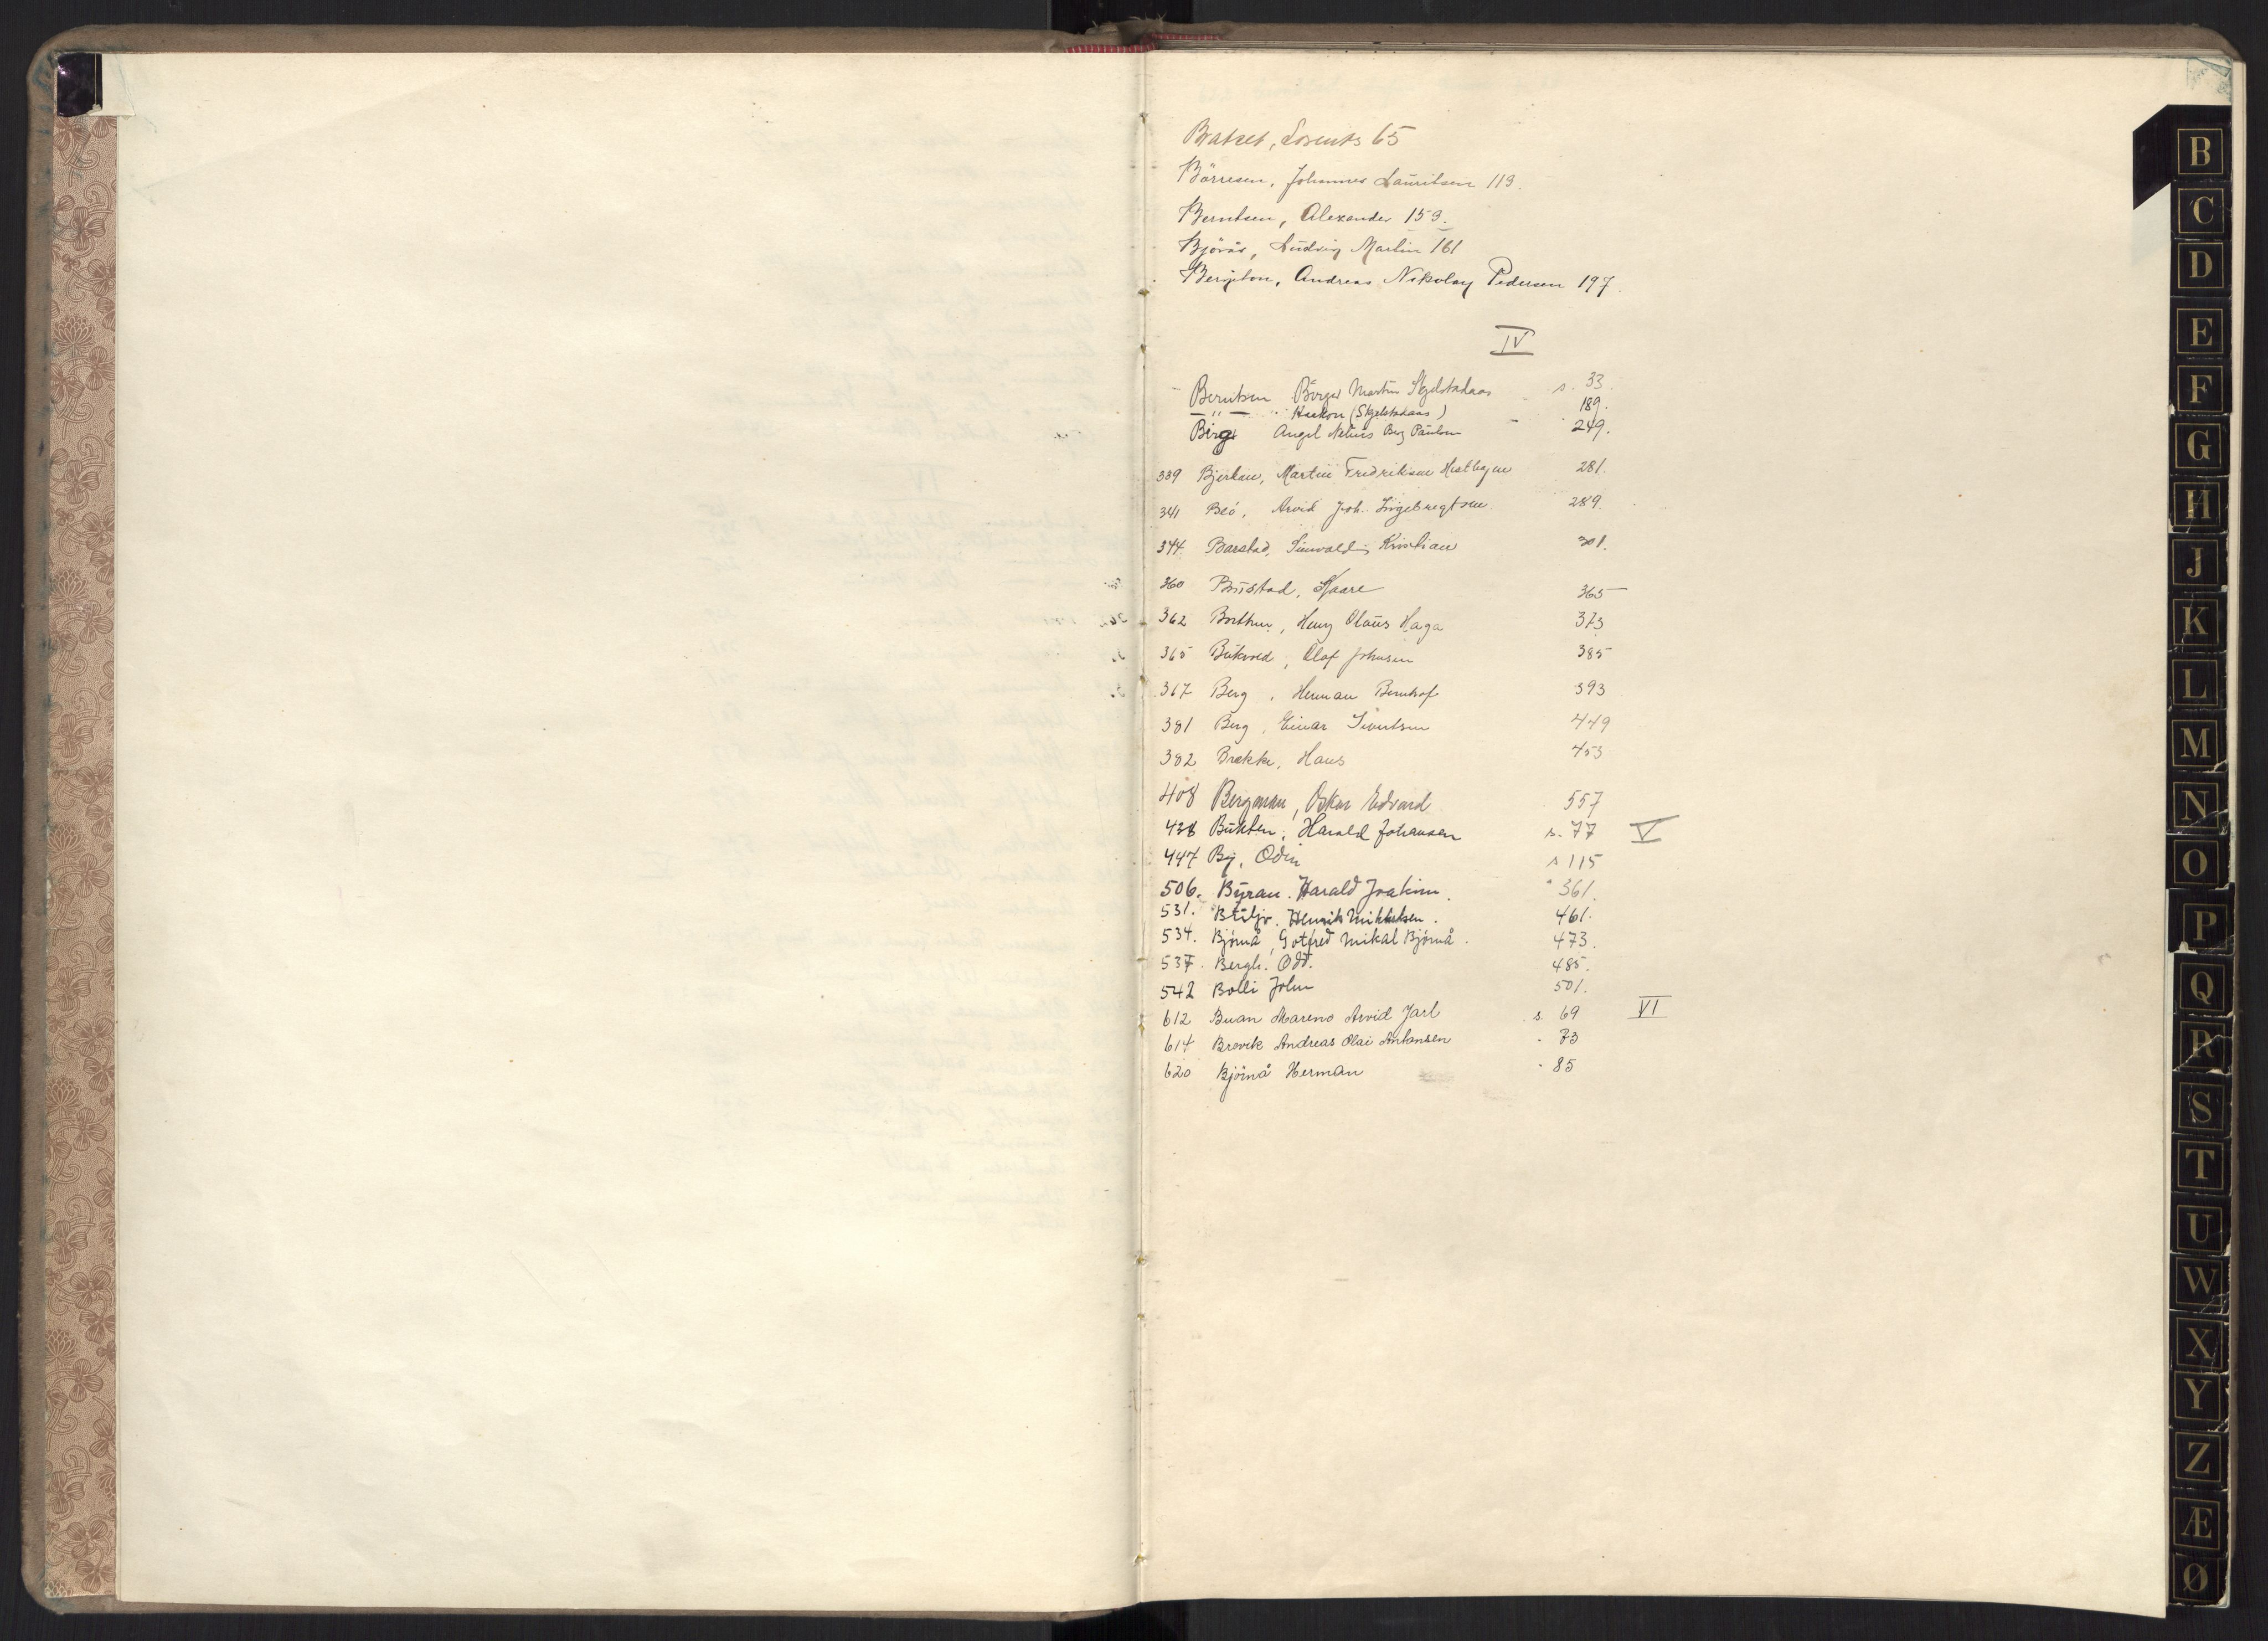 Bratset, Lorents 65
Börresen, Johannes Lauritsen 113.
Berntsen, Alexander 153.
Björås, Ludvig Martin 161
Andreas Nikolay Pedersen 197.
IV
Berntsen Birger Martin Skjelstadaas s. 33.
— " — Haakon (Skjelstadaas) 189.
Berg Angel Nelius Berg Paulsen 249.
339 Bjerkan, Martin Fredriksen 281.
341 Beó, Arvid Joh. Ingebregtsen 289.
344 Barstad, Sievald Kristian 301.
360 Bustad, Kaare 365
362 Borthen, Henry Olaüs Haga 373
365 Bükved, Olaf Johnsen 385
367 Berg, Herman Berntsof 393
381 Berg, Einar Sivertsen 449
382 Brekke, Hans 453
408 Bergman, Oskar Edvard 557
438 Bükten, Harald Johansen s. 77 V
447 By, Odin s 115
506. Byran. Harald Joakim. " 361.
531. Henrik Mikkelsen. 461.
534. Björnå, Gotfred Mikal Björnå. 473.
537. Bergh. Odd. 485.
542 Bolli John 501.
612 Buan Mareno Arvid Jarl s. 69 VI
614 Brevik Andreas Olai Antonsen - 73
620 Björnå Herman - 85
B
C
D
E
F
G
H
J
K
L
M
N
O
P
Q
R
S
T
U
W
X
Y
Z
Æ
Ø